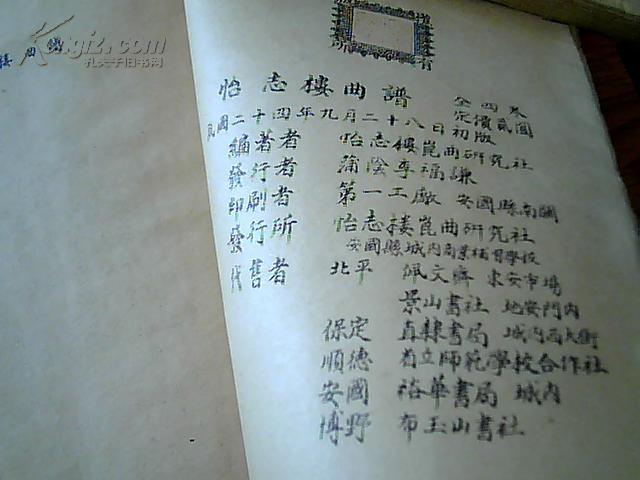 怡志樓曲譜
全四卷
定價貳圓
民國二十四年九月二十八日初版
編著者 怡志樓崑曲研究社
發行者 蒲陰李福謙
印刷者 第一工廠 安國縣南關
發行所 怡志樓崑曲研究社
安國縣城內商業補習學校
代售者 北平 佩文齋 東安市場
景山書社 地安門內
保定 直隸書局 城內西大街
順德 省立師範學校合作社
安國 裕華書局 城內
博野 布玉山書社
孔夫子旧书网